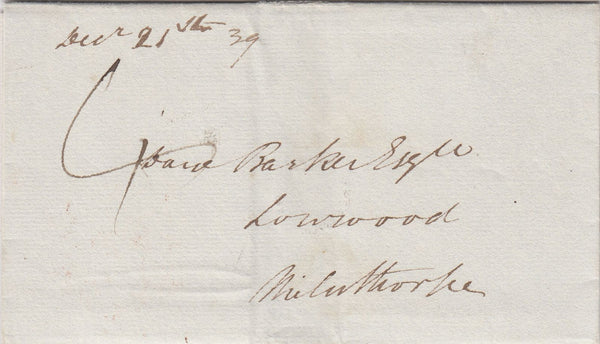 Decr 21st 39
4
Barker Esqre
Lowwood
Milnthorpe